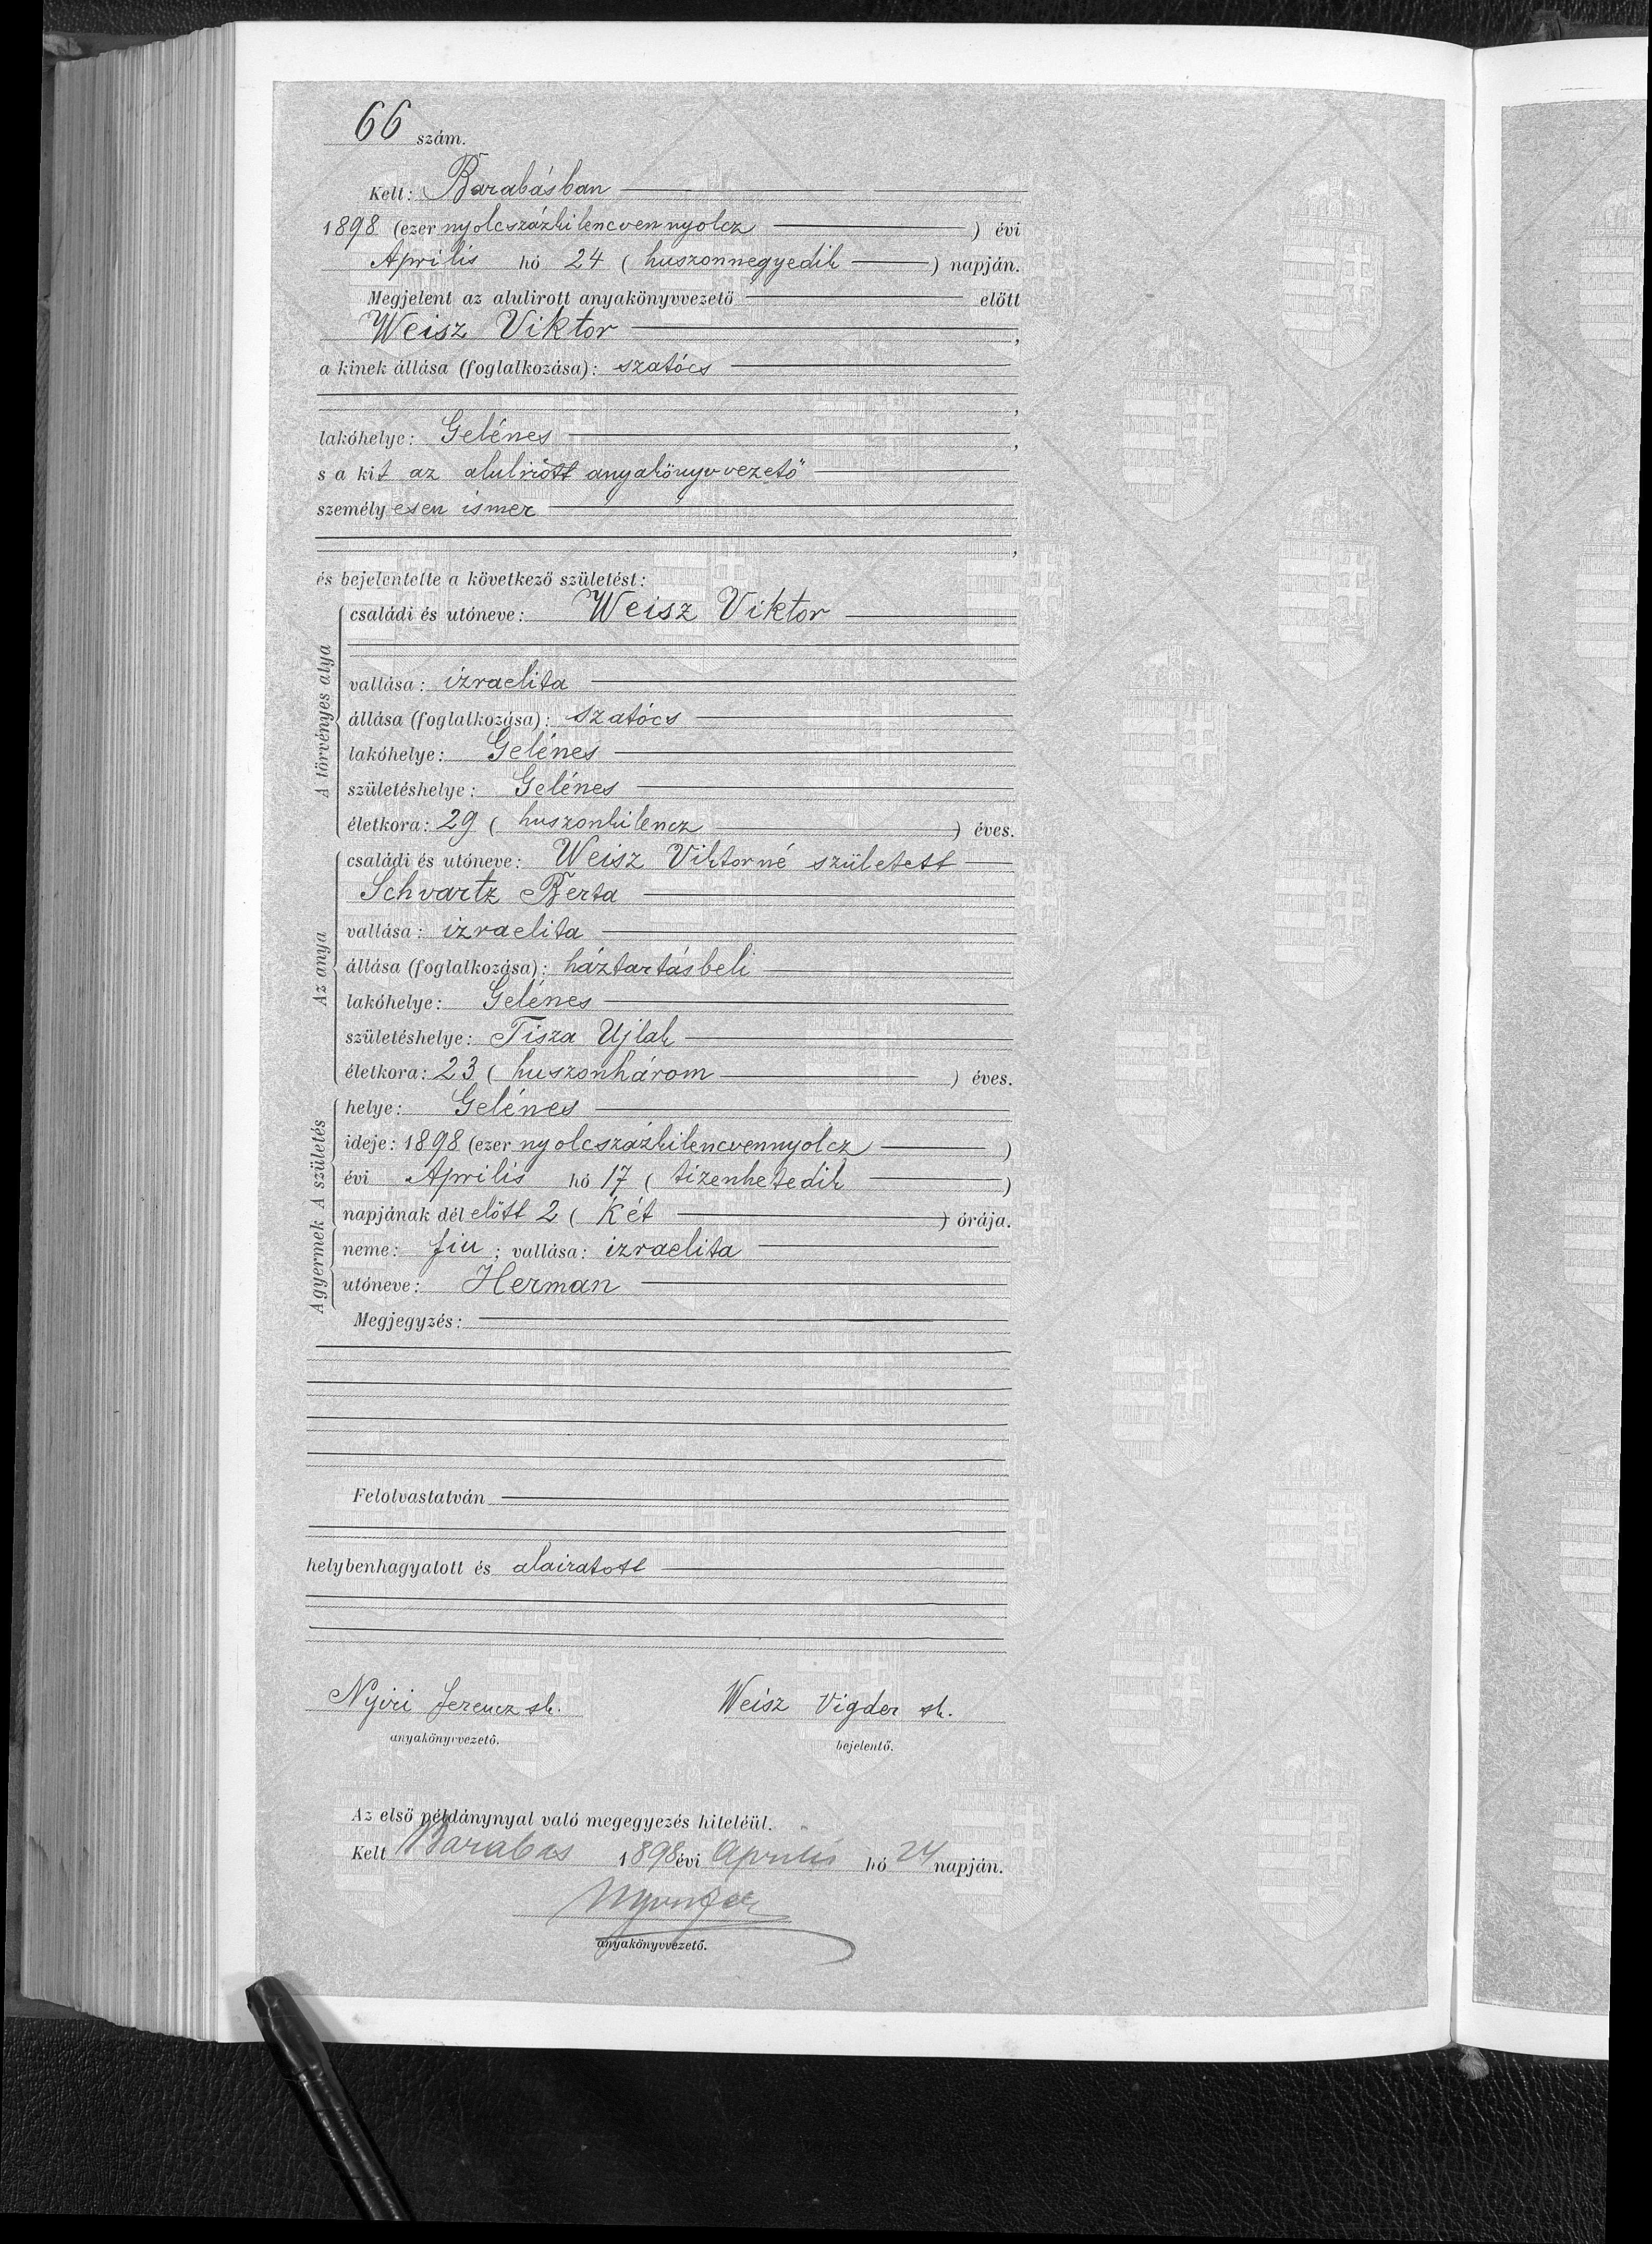 66 szám.
Kelt: Barabásban
1898 (ezer nyolcszázkilencvennyolcz) évi
Aprilis hó 24 (huszonnegyedik) napján.
Megjelent az alulirott anyakönyvvezető előtt
Weisz Viktor,
a kinek állása (foglalkozása): szatócs
,
lakóhelye: Gelénes,
s a kit az alulirott anyakönyvvezető
személyesen ismer
,
és bejelentette a következő születést:
A törvényes atya
családi és utóneve: Weisz Viktor
vallása: izraelita
állása (foglalkozása): szatócs
lakóhelye: Gelénes
születéshelye: Gelénes
életkora: 29 (huszonkilencz) éves.
Az anya
családi és utóneve: Weisz Viktorné született
Schvartz Berta
vallása: izraelita
állása (foglalkozása): háztartásbeli
lakóhelye: Gelénes
születéshelye: Tisza Ujlak
életkora: 23 (huszonhárom) éves.
A születés
helye: Gelénes
ideje: 1898 (ezer nyolcszázkilencvennyolcz)
évi Aprilis hó 17 (tizenhetedik)
napjának dél előtt 2 (két) órája.
A gyermek
neme: fiu; vallása: izraelita
utóneve: Herman
Megjegyzés:
Felolvastatván
helybenhagyatott és alairatott
Nyiri Ferencz sk. Weisz Vigder sk.
anyakönyvvezető. bejelentő.
Az első példánynyal való megegyezés hiteléül.
Kelt Barabás 1898 évi Aprilis hó 24 napján.
anyakönyvvezető.